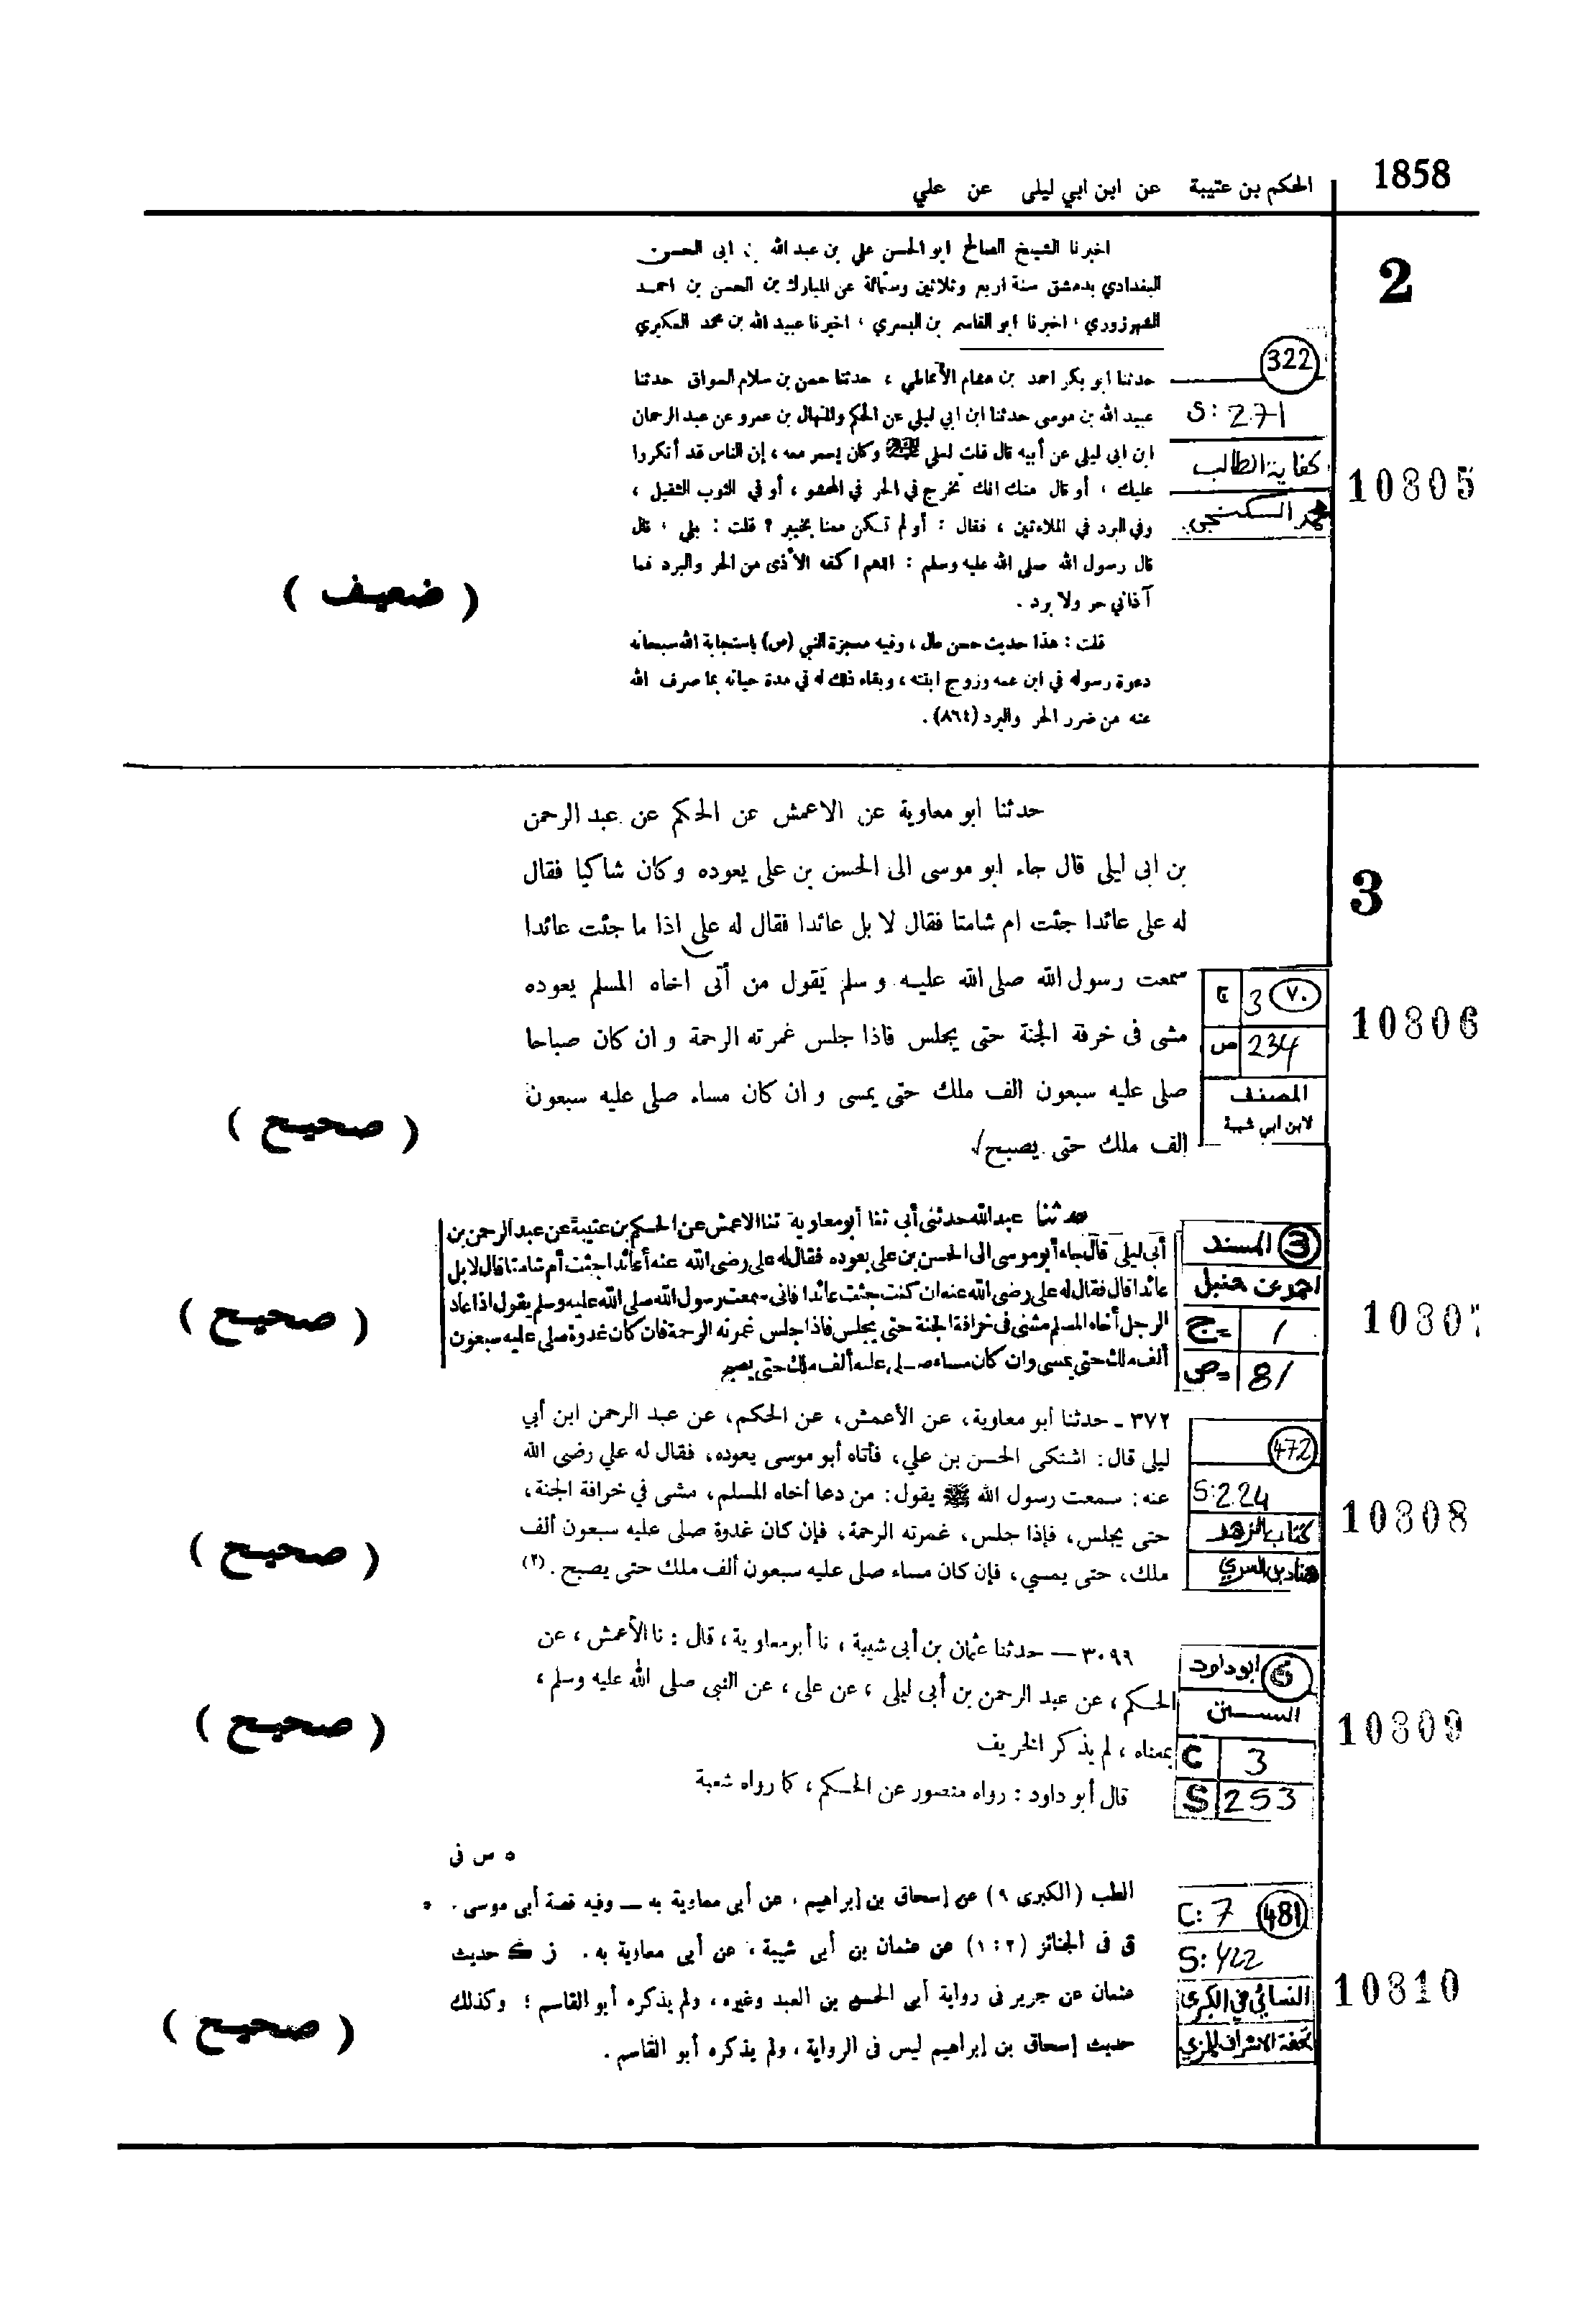 1858
الحكم بن عتيبة عن ابن ابي ليلى عن علي
2
اخبرنا الشيخ الصالح ابو الحسن علي بن عبد الله بن ابى الحسن
البغدادي بدمشق سنة اربع وثلاثين وستمائة عن المبارك بن الحسن بن احمد
الشهرزوري ، اخبرنا ابو القاسم بن البسري ، اخبرنا عبيد الله بن محمد العكبري
322
S: 271
كفاية الطالب
10805
حدثنا ابو بكر احمد بن هشام الأنماطي ، حدثنا حسن بن سلام السواق حدثنا
عبيد الله بن موسى حدثنا ابن ابي ليلى عن الحكم والمنهال بن عمرو عن عبد الرحمان
ابن ابى ليلى عن أبيه قال قلت لعلي وكان يسمر معه ، إن الناس قد أنكروا
عليك ، أو قال منك انك تخرج في الحر في المحشو ، أو في الثوب الثقيل ،
وفي البرد في الملاءتين ، فقال : أو لم تكن معنا بخيبر ؟ قلت : بلى ، قال
قال رسول الله صلى الله عليه وسلم : اللهم اكفه الأذى من الحر والبرد فما
آذاني حر ولا برد .
( ضعيف )
قلت : هذا حديث حسن عال ، وفيه معجزة النبي (ص) باستجابة الله سبحانه
دعوة رسوله في ابن عمه وزوج ابنته ، وبقاء ذلك له في مدة حياته بما صرف الله
عنه من ضرر الحر والبرد (٨٦٤) .
3
حدثنا ابو معاوية عن الاعمش عن الحكم عن عبد الرحمن
بن ابى ليلى قال جاء ابو موسى الى الحسن بن على يعوده وكان شاكيا فقال
له على عائدا جئت ام شامتا فقال لا بل عائدا فقال له على اذا ما جئت عائدا
سمعت رسول الله صلى الله عليه و سلم يقول من أتى اخاه المسلم يعوده
مشى فى خرفة الجنة حتى يجلس فاذا جلس غمرته الرحمة و ان كان صباحا
صلى عليه سبعون الف ملك حتى يمسى و ان كان مساء صلى عليه سبعون
الف ملك حتى يصبح /.
٧٠ 3 ج
234 ص
المصنف
لابن ابي شيبة
10806
( صحيح )
حدثنا عبدالله حدثنى أبي ثنا أبومعاوية ثنا الاعمش عن الحكم بن عتيبة عن عبد الرحمن بن
أبى ليلى قال جاء أبو موسى الى الحسن بن على يعوده فقال له على رضى الله عنه أعائدا جئت أم شامتا قال لا بل
عائدا قال فقال له على رضى الله عنه ان كنت جئت عائدا فانى سمعت رسول الله صلى الله عليه وسلم يقول اذا عاد
الرجل أخاه المسلم مشى فى خرافة الجنة حتى يجلس فاذا جلس غمرته الرحمة فان كان غدوة صلى عليه سبعون
ألف ملك حتى يمسى وان كان مساء صلى عليه ألف ملك حتى يصبح
3 المسند
احمد بن حنبل
ج= 1
ص= 81
10807
( صحيح )
٣٧٢ ـ حدثنا أبو معاوية، عن الأعمش، عن الحكم، عن عبد الرحمن ابن أبي
ليلى قال: اشتكى الحسن بن علي، فأتاه أبو موسى يعوده، فقال له علي رضي الله
عنه: سمعت رسول الله ﷺ يقول: من دعا أخاه المسلم، مشى في خرافة الجنة،
حتى يجلس، فإذا جلس، غمرته الرحمة، فإن كان غدوة صلى عليه سبعون ألف
ملك، حتى يمسي، فإن كان مساء صلى عليه سبعون ألف ملك حتى يصبح .(٢)
472
S:224
كتاب الزهد
هناد بن السري
10808
( صحيح )
٣٠٩٩ — حدثنا عثمان بن أبى شيبة ، نا أبو معاوية ، قال : نا الأعمش ، عن
الحكم ، عن عبد الرحمن بن أبى ليلى ، عن على ، عن النبى صلى الله عليه وسلم ،
بمعناه ، لم يذكر الخريف
قال أبو داود : رواه منصور عن الحكم ، كما رواه شعبة
ابو داود
السنن
C 3
S 253
10809
( صحيح )
ه س فى
الطب (الكبرى ٩) عن إسحاق بن إبراهيم ، عن أبى معاوية به — وفيه قصة أبى موسى .
ق فى الجنائز (٢ : ١) عن عثمان بن أبى شيبة ، عن أبى معاوية به . ز ك حديث
عثمان عن جرير فى رواية أبى الحسن بن العبد وغيره ، ولم يذكره أبو القاسم ؛ وكذلك
حديث إسحاق بن إبراهيم ليس فى الرواية ، ولم يذكره أبو القاسم .
C: 7 481
S: 422
النسائي في الكبرى
تحفة الاشراف للمزي
10810
( صحيح )